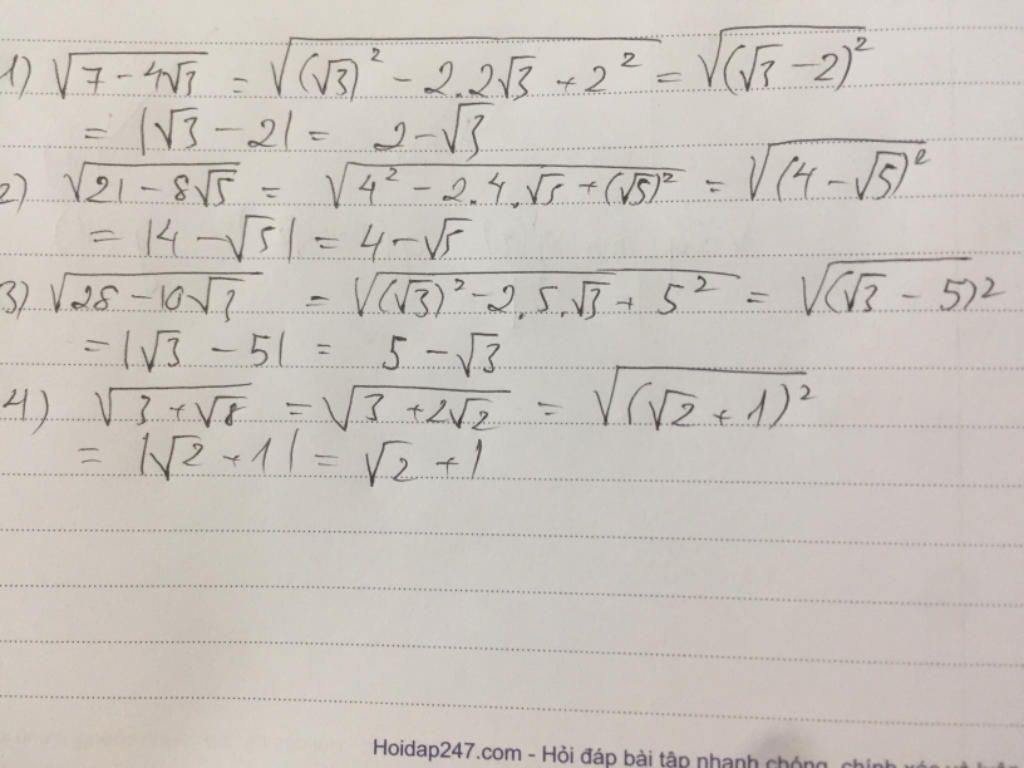 1) √(7 - 4√3) = √((√3)² - 2.2√3 + 2²) = √((√3 - 2)²)
= |√3 - 2| = 2 - √3
2) √(21 - 8√5) = √(4² - 2.4.√5 + (√5)²) = √((4 - √5)²)
= |4 - √5| = 4 - √5
3) √(28 - 10√3) = √((√3)² - 2.5.√3 + 5²) = √((√3 - 5)²)
= |√3 - 5| = 5 - √3
4) √(3 + √8) = √(3 + 2√2) = √((√2 + 1)²)
= |√2 + 1| = √2 + 1
Hoidap247.com - Hỏi đáp bài tập nhanh chóng, chính xác và